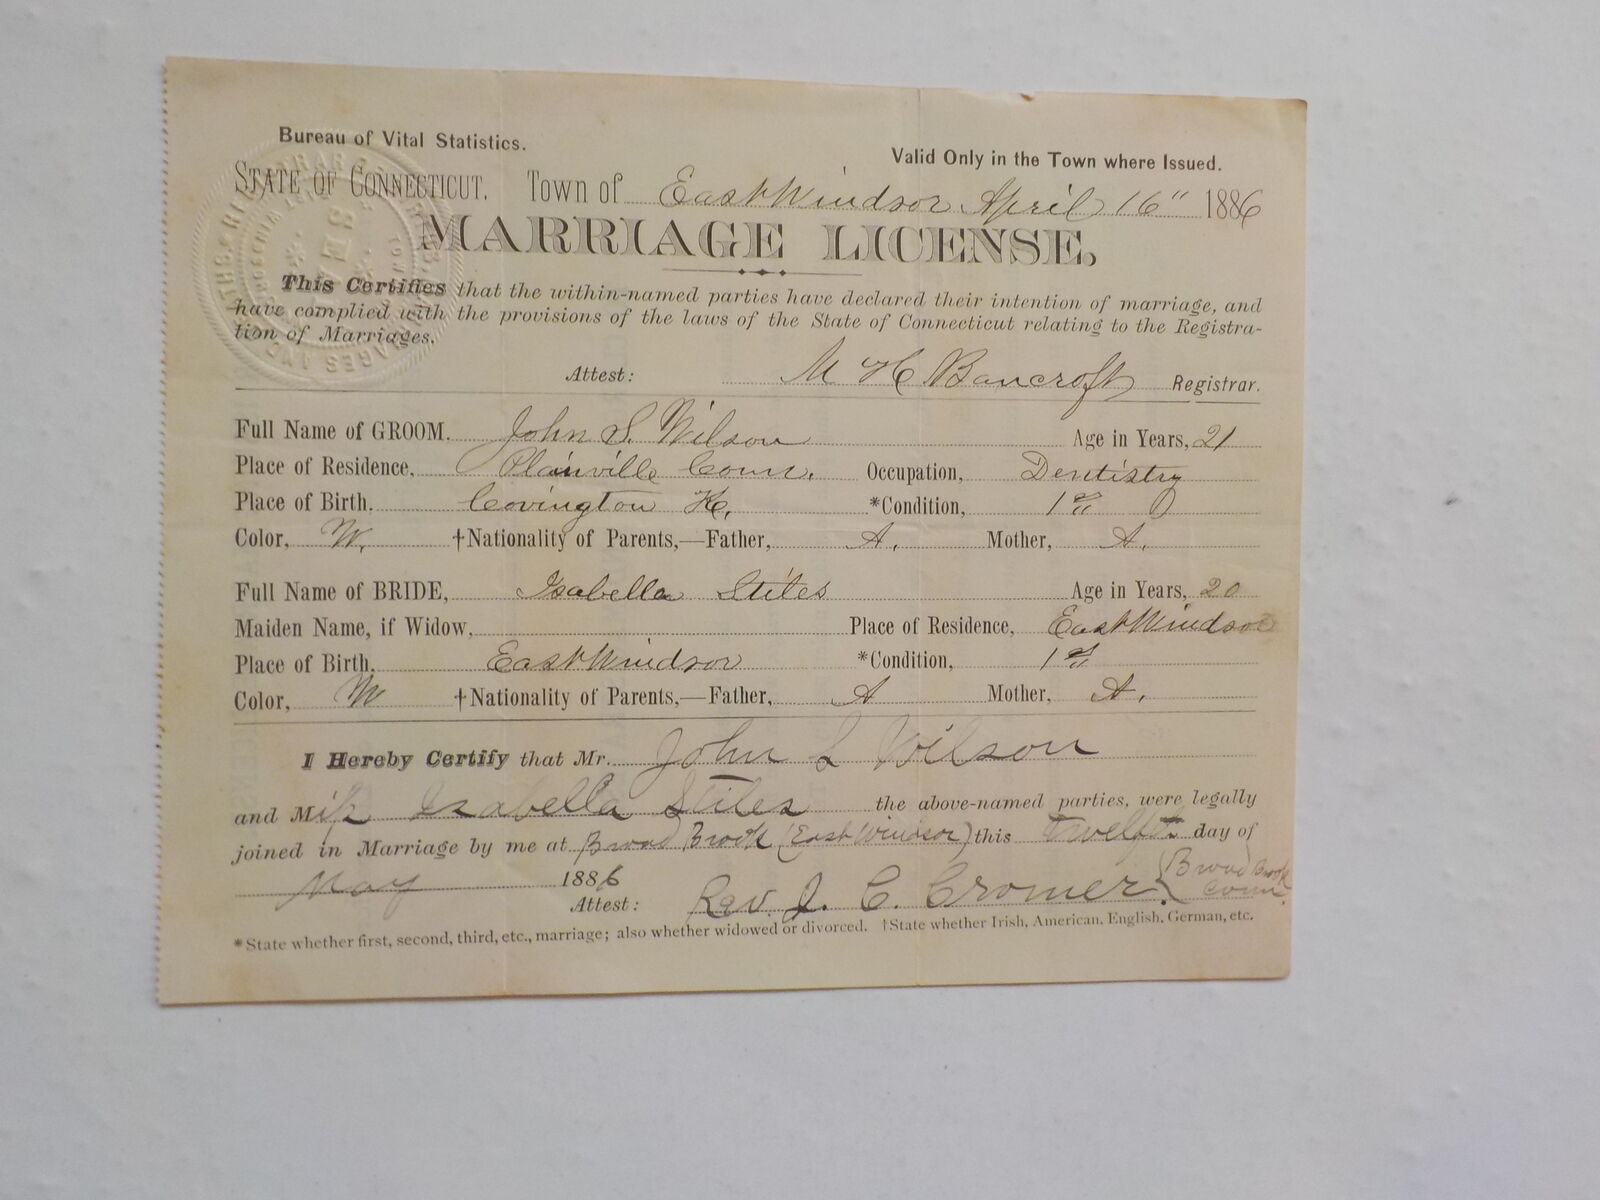 Bureau of Vital Statistics.
Valid Only in the Town where Issued.
STATE OF CONNECTICUT. Town of East Windsor April 16" 1886
MARRIAGE LICENSE,
This Certifies that the within-named parties have declared their intention of marriage, and
have complied with the provisions of the laws of the State of Connecticut relating to the Registra-
tion of Marriages.
Attest: M H Bancroft Registrar.
Full Name of GROOM. John S. Wilson Age in Years, 21
Place of Residence, Plainville Conn. Occupation, Dentistry
Place of Birth. Covington K, *Condition, 1st
Color, W. †Nationality of Parents,—Father, A. Mother, A.
Full Name of BRIDE, Isabella Stiles Age in Years, 20
Maiden Name, if Widow, Place of Residence, East Windsor
Place of Birth, East Windsor *Condition, 1st
Color, W †Nationality of Parents,—Father, A Mother, A.
I Hereby Certify that Mr. John S Wilson
and Miss Isabella Stiles the above-named parties, were legally
joined in Marriage by me at Broad Brook (East Windsor) this twelfth day of
May 1886
Attest: Rev. J. C. Cromer. (Broad Brook Conn.
*State whether first, second, third, etc., marriage; also whether widowed or divorced. †State whether Irish, American, English, German, etc.